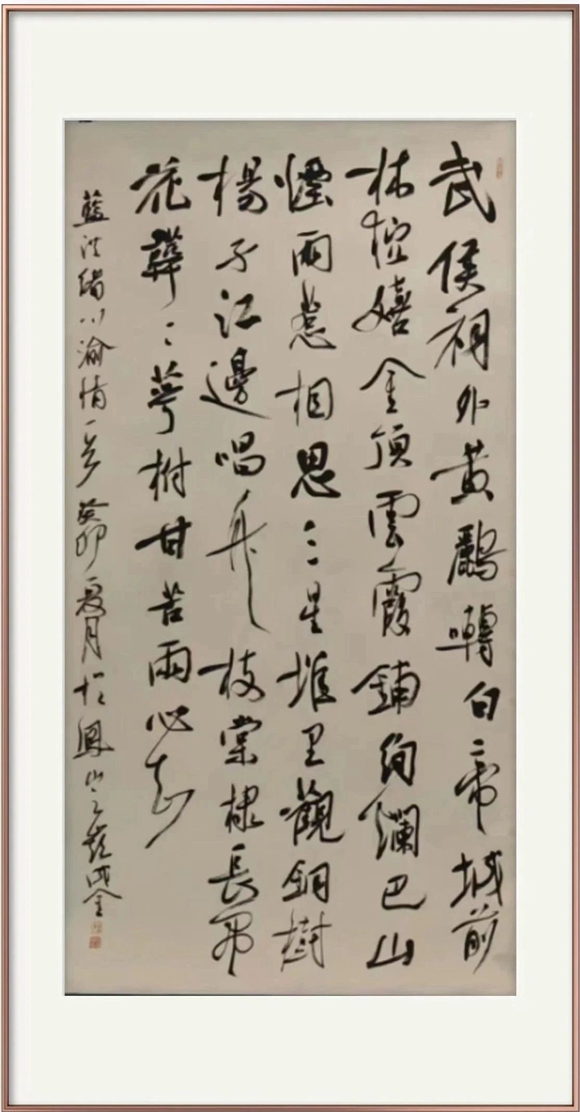 武侯祠外黄鸝囀白帝城前
林棔嬉金頂雲霞鋪絢爛巴山
煙雨惹相思三星堆里觀銅樹
楊子江邊唱竹枝棠棣長開
花韡韡萼柎甘苦兩心知
藍洪緒川渝情一首癸卯夏月於鳳山之嶺